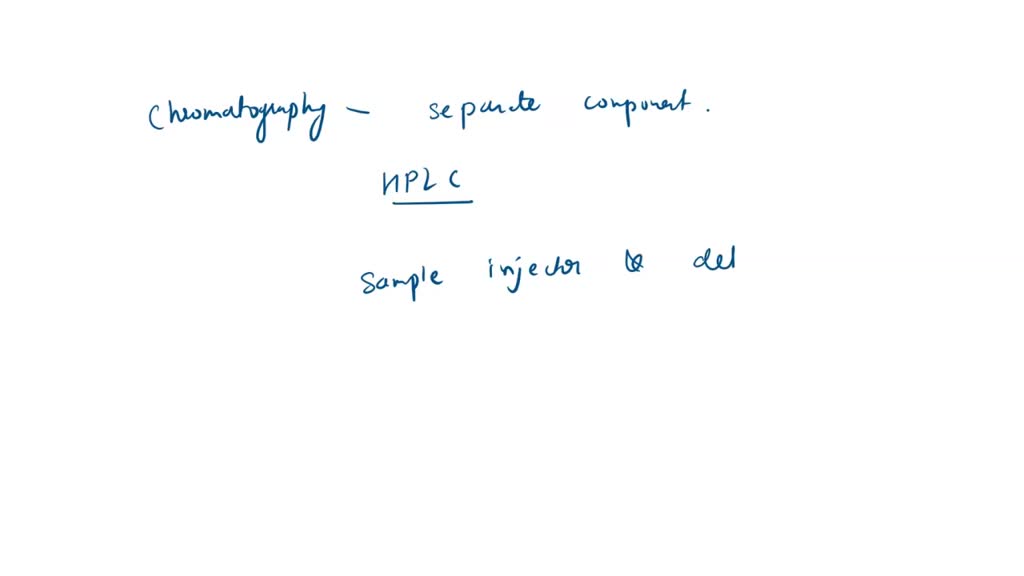 Chromatography – separate component.
HPLC
Sample injector & det